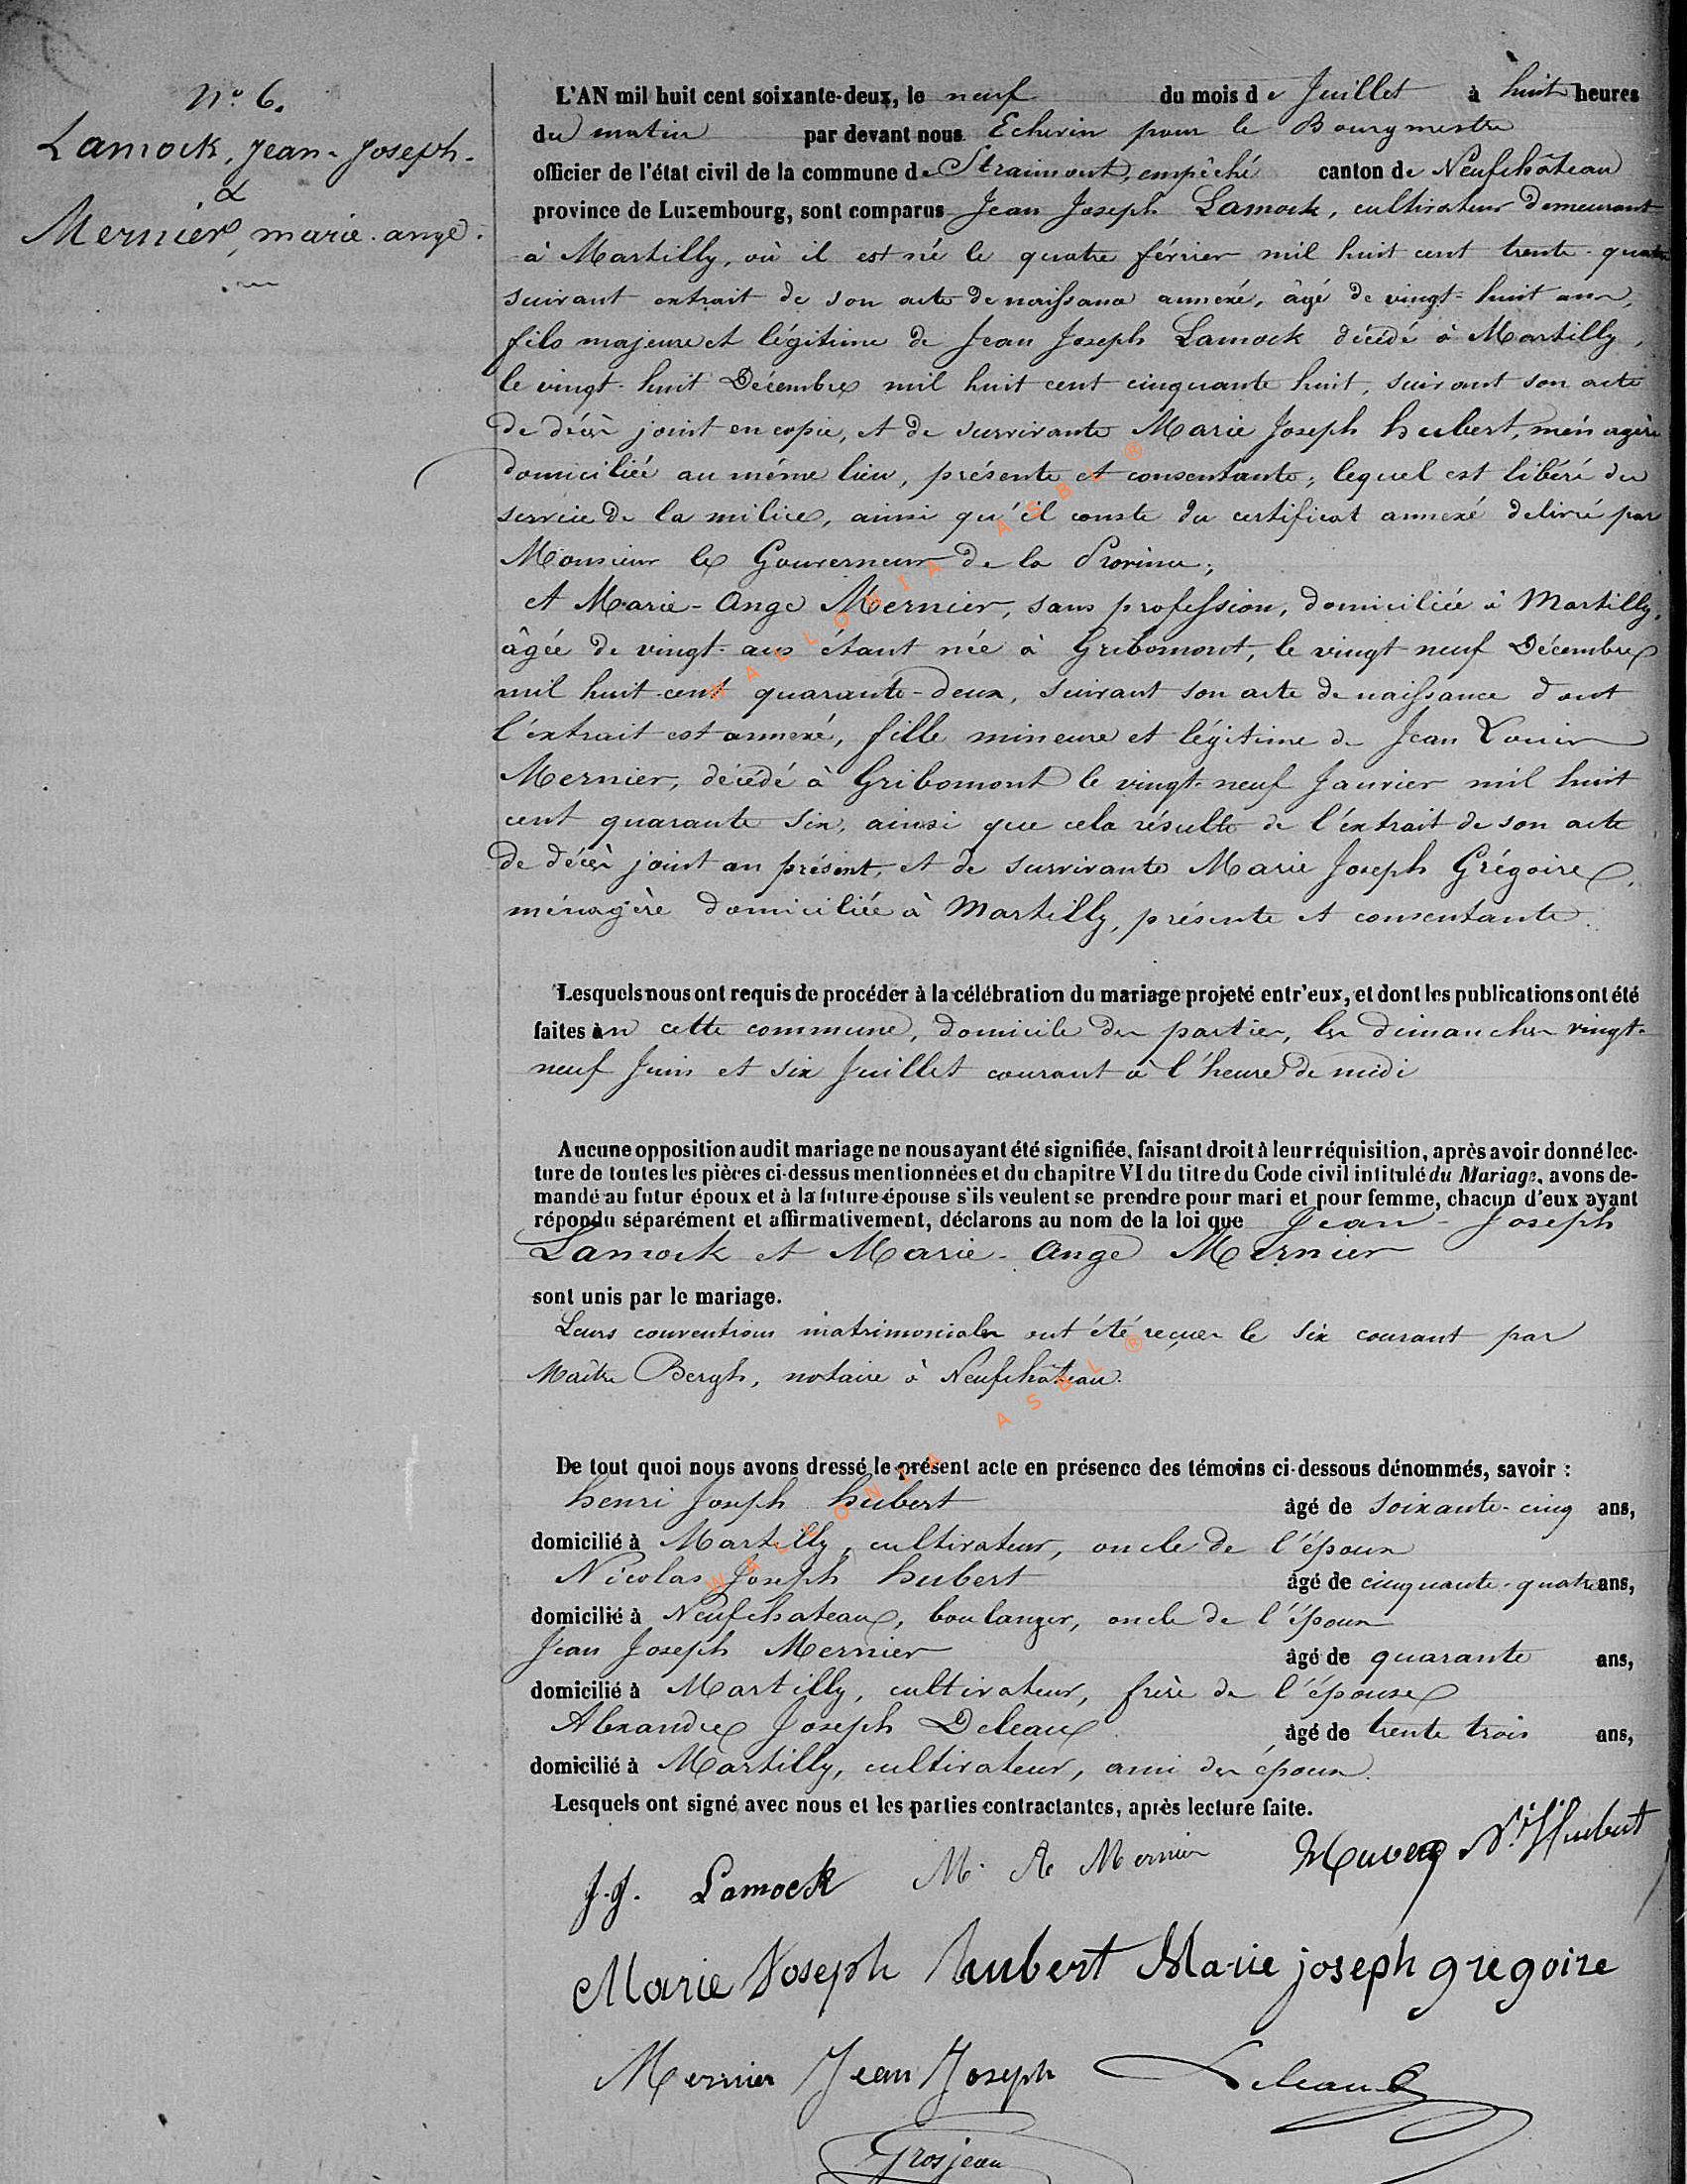 N.º 6.
Lamock, Jean-Joseph.
&
Mernier, marie. ange.
L'AN mil huit cent soixante-deux, le neuf du mois de Juillet à huit heures
du matin par devant nous Echevin pour le Bourgmestre
officier de l'état civil de la commune de Straimont, empêché canton de Neufchâteau
province de Luxembourg, sont comparus Jean Joseph Lamock, cultivateur demeurant
à Martilly, où il est né le quatre février mil huit cent trente-quatre
suivant extrait de son acte de naissance annexé, âgé de vingt-huit ans,
fils majeure et légitime de Jean Joseph Lamock décédé à Martilly,
le vingt-huit Décembre mil huit cent cinquante huit, suivant son acte
de décès joint en copie, et de survivante Marie Joseph hubert, ménagère
domiciliée au même lieu, présente et consentante; lequel est libéré du
service de la milice, ainsi qu'il conste du certificat annexé delivré par
Monsieur le Gouverneur de la Province;
et Marie-Ange Mernier, sans profession, domiciliée à Martilly,
âgée de vingt-ans étant née à Gribomont, le vingt neuf Décembre
mil huit-cent quarante-deux, suivant son acte de naissance dont
l'extrait est annexé, fille mineure et légitime de Jean Louis
Mernier, décédé à Gribomont le vingt-neuf Janvier mil huit
cent quarante six, ainsi que cela résulte de l'extrait de son acte
de décès joint au présent, et de survivante Marie Joseph Grégoire,
ménagère domiciliée à Martilly, présente et consentante.
Lesquels nous ont requis de procéder à la célébration du mariage projeté entr'eux, et dont les publications ont été
faites en cette commune, domicile des parties, les dimanches vingt-
neuf Juin et six Juillet courant à l'heure de midi
Aucune opposition audit mariage ne nous ayant été signifiée, faisant droit à leur réquisition, après avoir donné lec-
ture de toutes les pièces ci-dessus mentionnées et du chapitre VI du titre du Code civil intitulé du Mariage, avons de-
mandé au futur époux et à la future épouse s'ils veulent se prendre pour mari et pour femme, chacun d'eux ayant
répondu séparément et affirmativement, déclarons au nom de la loi que Jean-Joseph
Lamock et Marie-Ange Mernier
sont unis par le mariage.
Leurs conventions matrimoniales ont été reçues le six courant par
Maître Bergh, notaire à Neufchâteau.
De tout quoi nous avons dressé le présent acte en présence des témoins ci-dessous dénommés, savoir :
henri Joseph hubert âgé de soixante-cinq ans,
domicilié à Martilly, cultivateur, oncle de l'époux
Nicolas Joseph hubert âgé de cinquante-quatre ans,
domicilié à Neufchateau, boulanger, oncle de l'époux
Jean Joseph Mernier âgé de quarante ans,
domicilié à Martilly, cultivateur, frère de l'épouse
Alexandre Joseph Deleau âgé de trente trois ans,
domicilié à Martilly, cultivateur, ami des époux.
Lesquels ont signé avec nous et les parties contractantes, après lecture faite.
J.J. Lamock M. A Mernier N. J. Hubert
Marie Joseph hubert Marie joseph gregoire
Mernier Jean Joseph Deleau
Grosjean
WALLONIA ASBL ®
WALLONIA ASBL ®